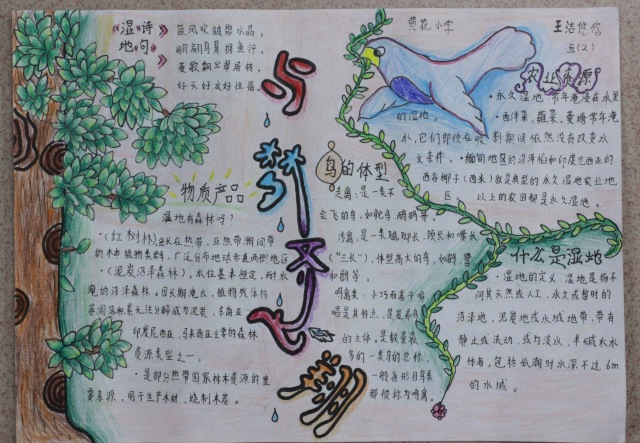 《湿地诗句》
蓝风吹皱碧水晶,
翩翩鸟翼掠鱼行,
好天好水好佳话。
与
湿
为
黄花小学
王洁悠悠
五(2)
农业资源
•永久湿地常年淹浸在水里
的湿地。
•西洋菜、蕹菜、茭塘常年淹
水,它们即使在收割期间依然没有改变水
文条件。•缅甸地区的浮海稻和印度尼西亚的
西谷椰子(西米)就是典型的永久湿地农业地
区。以上的农田都是永久湿地。
物质产品
湿地有森林吗?
•(红树林)生长在热带、亚热带潮间带
的木本植物类群,广泛分布地球赤道两侧地区
•(泥炭沼泽森林),水位基本恒定,而时水
淹的沼泽森林。因长期淹水,植物残体枯
落积累无法分解成为泥炭,东南亚
印度尼西亚、马来西亚主要的森林
资源类型之一。
•是部分热带国家林木资源的重
要来源,用于生产木材、烧制木炭。
鸟的体型
走禽:是一类不
会飞的鸟,如鸵鸟、鸸鹋等。
涉禽:是一类腿脚长、颈长和嘴长
("三长"),体型高大的鸟,如鹤、鹭
和鹳等。
鸣禽类:小巧而善于鸣
唱是其特点,是笼养鸟
的主体。是数量最
多的一类鸟的总称,
一般雀形目鸟类
都被称为鸣禽。
什么是湿地
•湿地的定义:湿地是指不
问其天然或人工、永久或暂时的
沼泽地、泥炭地或水域地带,带有
静止或流动、或为淡水、半咸水水
体者,包括低潮时水深不过6m
的水域。